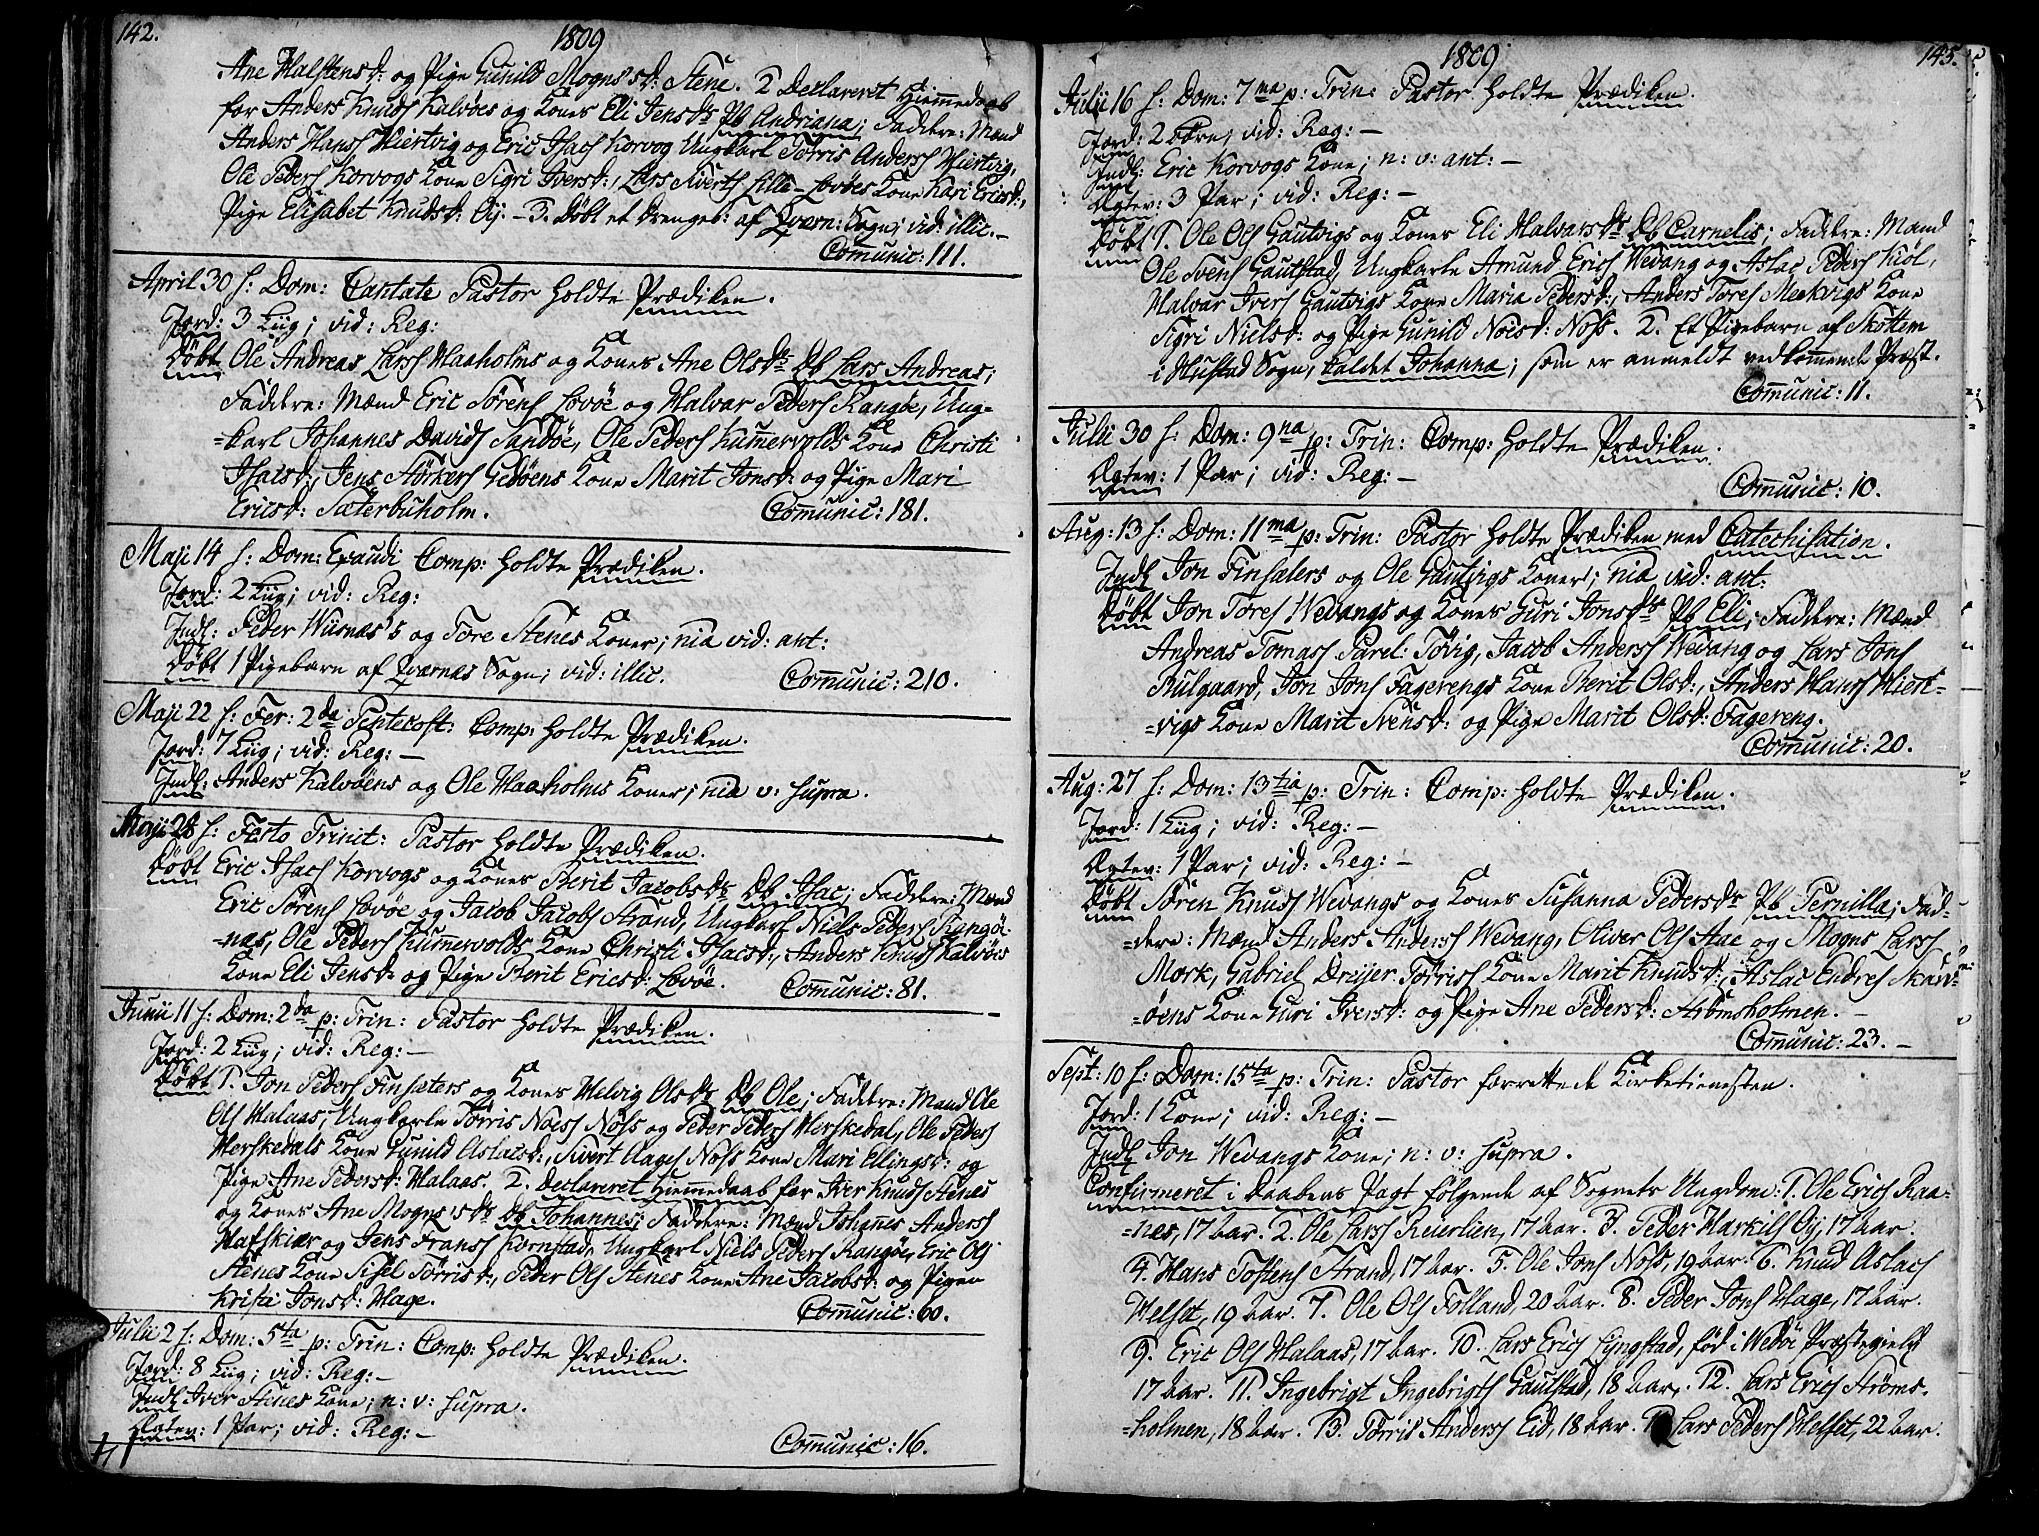 142.
1809
Ane Halstensd: og Pige Gunild Mogns'sd: Stene. 2 Declareret Hiemmedaab
for Anders Knuds Kalvöes og Kones Eli Jensdr Pb Andriana; Faddere: Mænd
Anders Hans Hiertvig og Eric Isacs Korvog Ungkarl Törris Anders Hiertvig,
Ole Peders Korvogs Kone Sigri Iversd:, Lars Siverts Lille-Lovöes Kone Kari Ericsd:,
Pige Elisabet Knudsd: Öy. - 3. Döbt et Drengeb: af Qværn: Sogn; vid: illic. -
Comunic: 111.
April 30 s: Dom: Cantate Pastor holdte Prædiken.
Jord: 3 Liig; vid: Reg:
Döbt Ole Andreas Lars Haaholms og Kones Ane Olsdr Db Lars Andreas;
Faddere: Mænd Eric Sörens Lovöe og Halvar Peders Rangöe, Ung-
-karl Johannes Davids Sandöe, Ole Peders Kummervolds Kone Christi
Isacsd:, Jens Störkers Gedöens Kone Marit Jonsd: og Pige Mari
Ericsd: Sæterbuholm.
Comunic: 181.
Maji 14 s: Dom: Exaudi Comp: holdte Prædiken.
Jord: 2 Liig; vid: Reg:
Indl: Peder Wiisnæs's og Tore Stenes Koner; nia vid: ant:
Döbt 1 Pigebarn af Qværnæs Sogn; vid: illic.
Comunic: 210.
Maji 22 s: Fer: 2da Pentecost: Comp: holdte Prædiken.
Jord: 7 Liig; vid: Reg: -
Indl: Anders Kalvöens og Ole Haaholms Koner; nia v: supra.
Maji 28 s: Festo Trinit: Pastor holdte Prædiken.
Döbt Eric Isacs Korvogs og Kones Berit Jacobsdr Db Isac; Faddere: Mænd
Eric Sörens Lovöe og Jacob Jacobs Strand, Ungkarl Niels Peders Rangö-
-næs, Ole Peders Kummervolds Kone Christi Isacsd:, Anders Knuds Kalvöes
Kone Eli Jensd: og Pige Berit Ericsd: Lovöe.
Comunic: 81.
Junii 11 s: Dom: 2da p: Trin: Pastor holdte Prædiken.
Jord: 2 Liig; vid: Reg: -
Döbt 1. Jon Peders Finsæters og Kones Helvig Olsdr Db Ole; Faddere: Mænd Ole
Ols Malaas, Ungkarle Törris Noes Nöss og Peder Peders Herskedal, Ole Peders
Herskedals Kone Gunild Aslacsd:, Sivert Aages Nöss Kone Mari Ellingsd: og
Pige Ane Pedersd: Malaas. 2. Declareret Hiemmedaab for Iver Knuds Stenes
og Kones Ane Mogns'sdr Db Johannes; Faddere: Mænd Johannes Anders
Hafskiær og Jens Frans Kornstad, Ungkarl Niels Peders Rangöe, Eric Ols
Stenes Kone Sisel Törrisd:, Peder Ols Stenes Kone Ane Jacobsd: og Pigen
Kristi Jonsd: Hage.
Comunic: 60.
Julii 2 s: Dom: 5ta p: Trin: Comp: holdte Prædiken.
Jord: 8 Liig; vid: Reg: -
Indl Iver Stenes Kone; n: v: supra.
Ægtev: 1 Par; vid: Reg: -
Comunic: 16.
1809
145.
Julii 16 s: Dom: 7ma p: Trin: Pastor holdte Prædiken.
Jord: 2 Börn; vid: Reg: -
Indl: Eric Korvogs Kone; n: v: ant: -
Ægtev: 3 Par; vid: Reg: -
Döbt 1. Ole Ols Gautvigs og Kones Eli Halvarsdr Db Carnelis; Faddere: Mænd
Ole Svens Gautstad, Ungkarle Amund Erics Wevang og Aslac Peders Kiöl,
Halvar Ivers Gautvigs Kone Maria Pedersd:, Anders Tores Mekvigs Kone
Sigri Nielsd: og Pige Gunild Noesd: Nöss. 2. Et Pigebarn af Skottem
i Hustad Sogn, kaldet Johanna; som er anmeldt vedkommende Præst.
Comunic: 11.
Julii 30 s: Dom: 9na p: Trin: Comp: holdte Prædiken.
Ægtev: 1 Par; vid: Reg: -
Comunic: 10.
Aug: 13 s: Dom: 11ma p: Trin: Pastor holdte Prædiken med Catechisation.
Indl Jon Finsæters og Ole Gautvigs Koner; nia vid: ant:
Döbt Jon Tores Wevangs og Kones Guri Jonsdr Pb Eli; Faddere: Mænd
Andreas Tomas Parel: Tövig, Jacob Anders Wevang og Lars Jons
Bulgaard, Jon Jons Fagerengs Kone Berit Olsd:, Anders Hans Hiert-
-vigs Kone Marit Svensd: og Pige Marit Olsd: Fagereng.
Comunic: 20.
Aug: 27 s: Dom: 13tia p: Trin: Comp: holdte Prædiken.
Jord: 1 Liig; vid: Reg: -
Ægtev: 1 Par; vid: Reg: -
Döbt Sören Knuds Wevangs og Kones Susanna Pedersdr Pb Pernilla; Fad-
-dere: Mænd Anders Anders Wevang, Oliver Ols Aae og Mogns Lars
Mork, Gabriel Dreijer Törris Kone Marit Knudsd:, Aslac Endres Skar-
-öens Kone Guri Iversd: og Pige Ane Pedersd: Strömsholmen. -
Comunic: 23. -
Sept: 10 s: Dom: 15ta p: Trin: Pastor forrettede Kirketienesten.
Jord: 1 Kone; vid: Reg: -
Indl Jon Wevangs Kone; n: v: supra.
Confirmeret i Daabens Pagt fölgende af Sognets Ungdom: 1. Ole Erics Raa-
-næs, 17 Aar. 2. Ole Lars Reierlien, 17 Aar. 3. Peder Harkils Öy, 17 Aar.
4. Hans Tostens Strand, 17 Aar. 5. Ole Jons Nöss, 19 Aar. 6. Knud Aslacs
Helset, 19 Aar. 7. Ole Ols Folland, 20 Aar. 8. Peder Jons Hage, 17 Aar.
9. Eric Ols Malaas, 17 Aar. 10. Lars Erics Lyngstad, föd i Wedöi Præstegield
17 Aar. 11. Ingebrigt Ingebrigts Gautstad, 18 Aar. 12. Lars Erics Ströms-
-holmen, 18 Aar. 13. Törris Anders Eid, 18 Aar. Lars Peders Helset, 22 Aar.